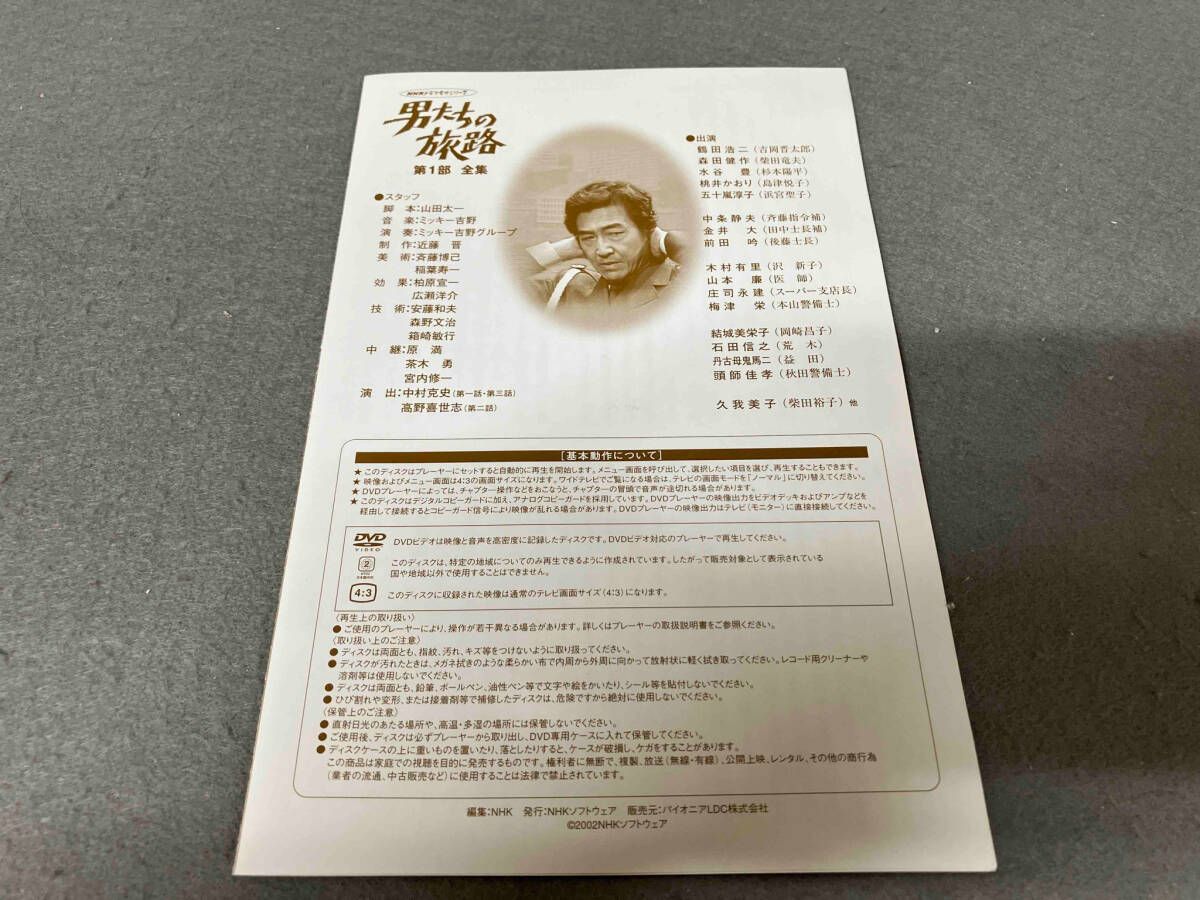 NHKドラマ名作シリーズ
男たちの
旅路
第1部 全集
●スタッフ
脚 本:山田太一
音 楽:ミッキー吉野
演 奏:ミッキー吉野グループ
制 作:近藤 晋
美 術:斉藤博己
稲葉寿一
効 果:柏原宣一
広瀬洋介
技 術:安藤和夫
森野文治
箱崎敏行
中 継:原 満
茶木 勇
宮内修一
演 出:中村克史(第一話・第三話)
高野喜世志(第二話)
●出演
鶴田浩二(吉岡晋太郎)
森田健作(柴田竜夫)
水谷 豊(杉本陽平)
桃井かおり(島津悦子)
五十嵐淳子(浜宮聖子)
中条静夫(斉藤指令補)
金井 大(田中士長補)
前田 吟(後藤士長)
木村有里(沢 新子)
山本 廉(医 師)
庄司永建(スーパー支店長)
梅津 栄(本山警備士)
結城美栄子(岡崎昌子)
石田信之(荒 木)
丹古母鬼馬二(益 田)
頭師佳孝(秋田警備士)
久我美子(柴田裕子)他
[基本動作について]
★このディスクはプレーヤーにセットすると自動的に再生を開始します。メニュー画面を呼び出して、選択したい項目を選び、再生することもできます。
★映像およびメニュー画面は4:3の画面サイズになります。ワイドテレビでご覧になる場合は、テレビの画面モードを「ノーマル」に切り替えてください。
★DVDプレーヤーによっては、チャプター操作などをおこなうと、チャプターの冒頭で音声が途切れる場合があります。
★このディスクはデジタルコピーガードに加え、アナログコピーガードを採用しています。DVDプレーヤーの映像出力をビデオデッキおよびアンプなどを
経由して接続するとコピーガード信号により映像が乱れる場合があります。DVDプレーヤーの映像出力はテレビ(モニター)に直接接続してください。
DVD
VIDEO
DVDビデオは映像と音声を高密度に記録したディスクです。DVDビデオ対応のプレーヤーで再生してください。
2
このディスクは、特定の地域についてのみ再生できるように作成されています。したがって販売対象として表示されている
国や地域以外で使用することはできません。
4:3
このディスクに収録された映像は通常のテレビ画面サイズ(4:3)になります。
〈再生上の取り扱い〉
●ご使用のプレーヤーにより、操作が若干異なる場合があります。詳しくはプレーヤーの取扱説明書をご参照ください。
〈取り扱い上のご注意〉
●ディスクは両面とも、指紋、汚れ、キズ等をつけないように取り扱ってください。
●ディスクが汚れたときは、メガネ拭きのような柔らかい布で内周から外周に向かって放射状に軽く拭き取ってください。レコード用クリーナーや
溶剤等は使用しないでください。
●ディスクは両面とも、鉛筆、ボールペン、油性ペン等で文字や絵をかいたり、シール等を貼付しないでください。
●ひび割れや変形、または接着剤等で補修したディスクは、危険ですから絶対に使用しないでください。
〈保管上のご注意〉
●直射日光のあたる場所や、高温・多湿の場所には保管しないでください。
●ご使用後、ディスクは必ずプレーヤーから取り出し、DVD専用ケースに入れて保管してください。
●ディスクケースの上に重いものを置いたり、落としたりすると、ケースが破損し、ケガをすることがあります。
この商品は家庭での視聴を目的に発売するものです。権利者に無断で、複製、放送(無線・有線)、公開上映、レンタル、その他の商行為
(業者の流通、中古販売など)に使用することは法律で禁止されています。
編集:NHK 発行:NHKソフトウェア 販売元:パイオニアLDC株式会社
©2002NHKソフトウェア